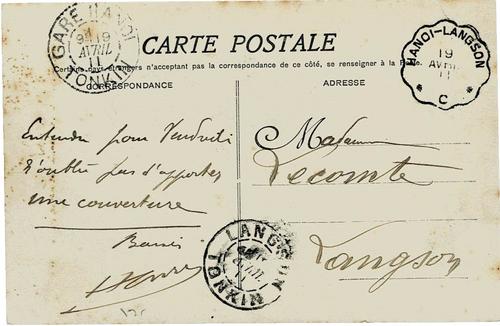 GARE HANOI
9M 19
AVRIL
11
TONKIN
CARTE POSTALE
Certains pays étrangers n'acceptant pas la correspondance de ce côté, se renseigner à la Poste.
HANOI-LANGSON
19
AVRIL
11
C
CORRESPONDANCE
ADRESSE
Entendu pour Vendredi
N'oublie pas d'apporter
une couverture
Madame
Lecomte
Langson
LANGSON
TONKIN